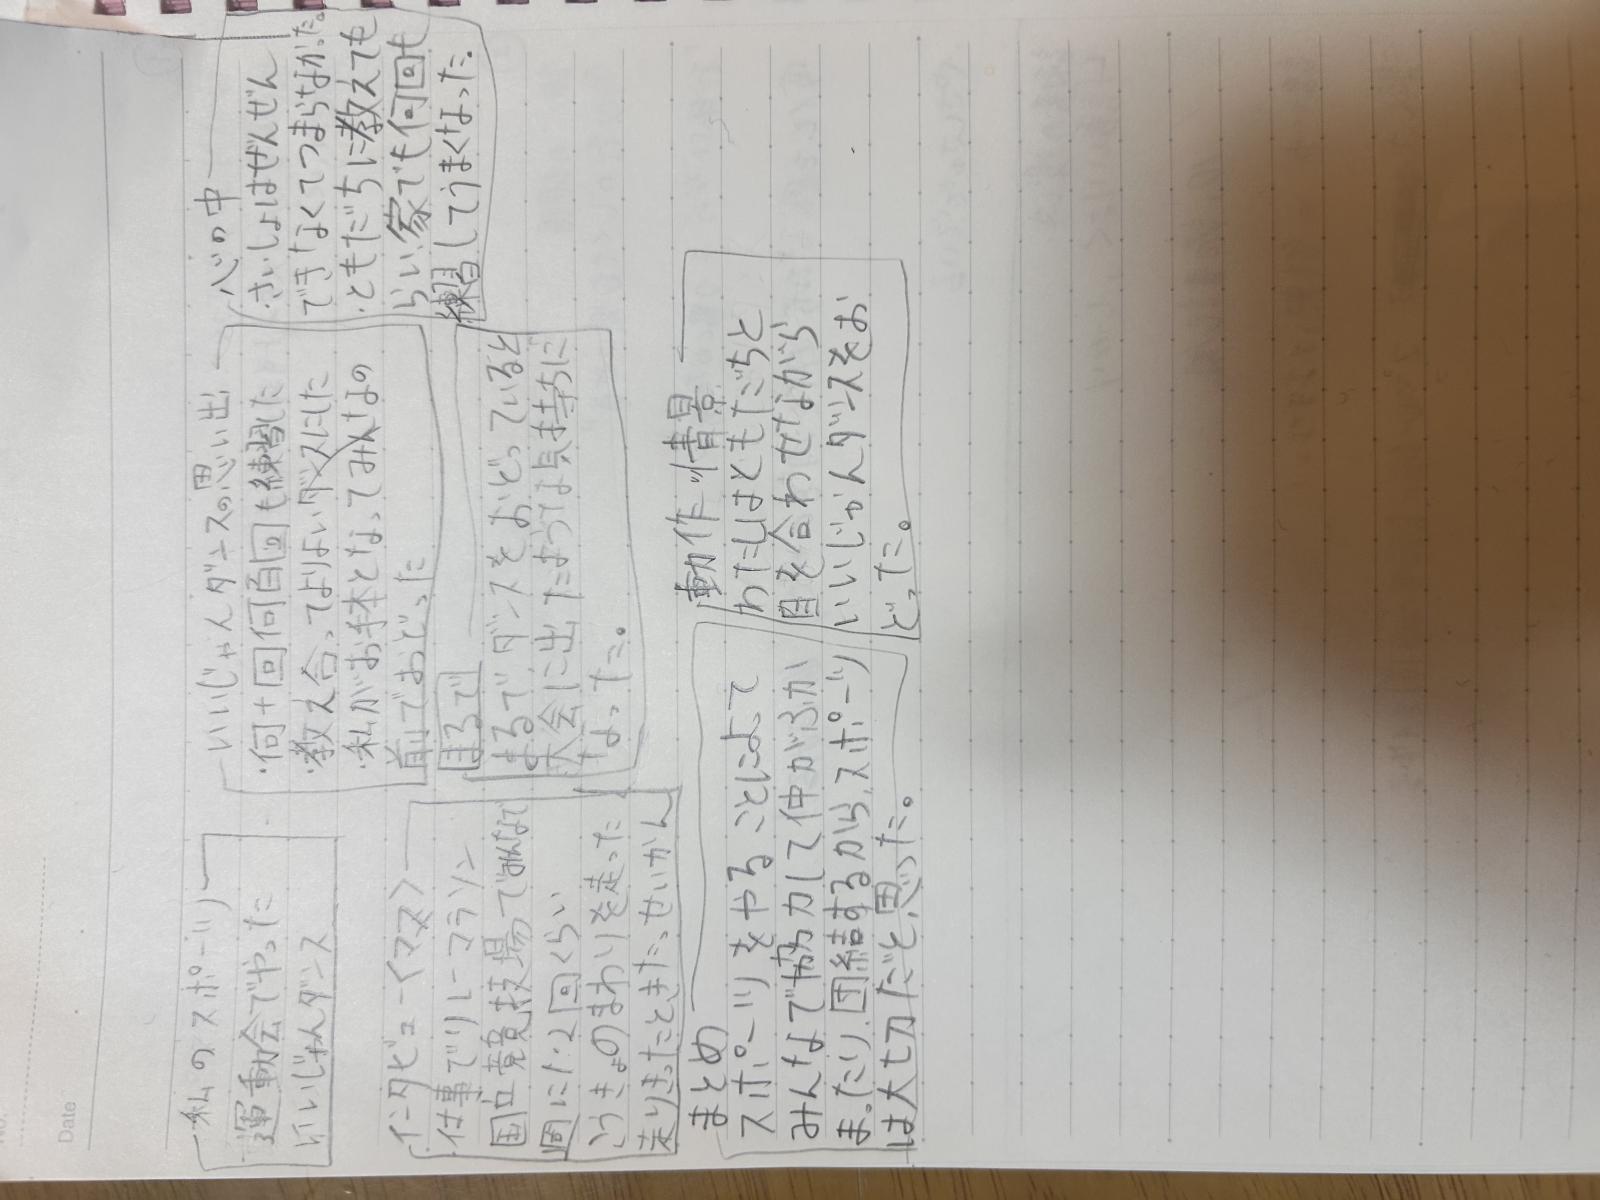 私のスポーツ
運動会でやった
いいじゃんダンス
いいじゃんダンスの思い出
・何十回何百回も練習した
・教え合ってよりよいダンスにした
・私がお手本となってみんなの
前でおどった
心の中
・さいしょはぜんぜん
できなくてつまらなかった。
・ともだちに教えても
らい家でも何回も
練習してうまくなった。
インタビュー<ママ>
・仕事でリレーマラソン
国立競技場でみんなで
週に1、2回くらい
こうきょのまわりを走った
走りきったときたっせいかん
まるで
まるでダンスをおどっていると
大会に出たような気持ちに
なった。
まとめ
スポーツをやることによって
みんなで協力して仲がふか
まったり、団結するから、スポーツ
は大切だと思った。
動作・情景
わたしはともだちと
目を合わせながら
いいじゃんダンスをお
どった。
Date